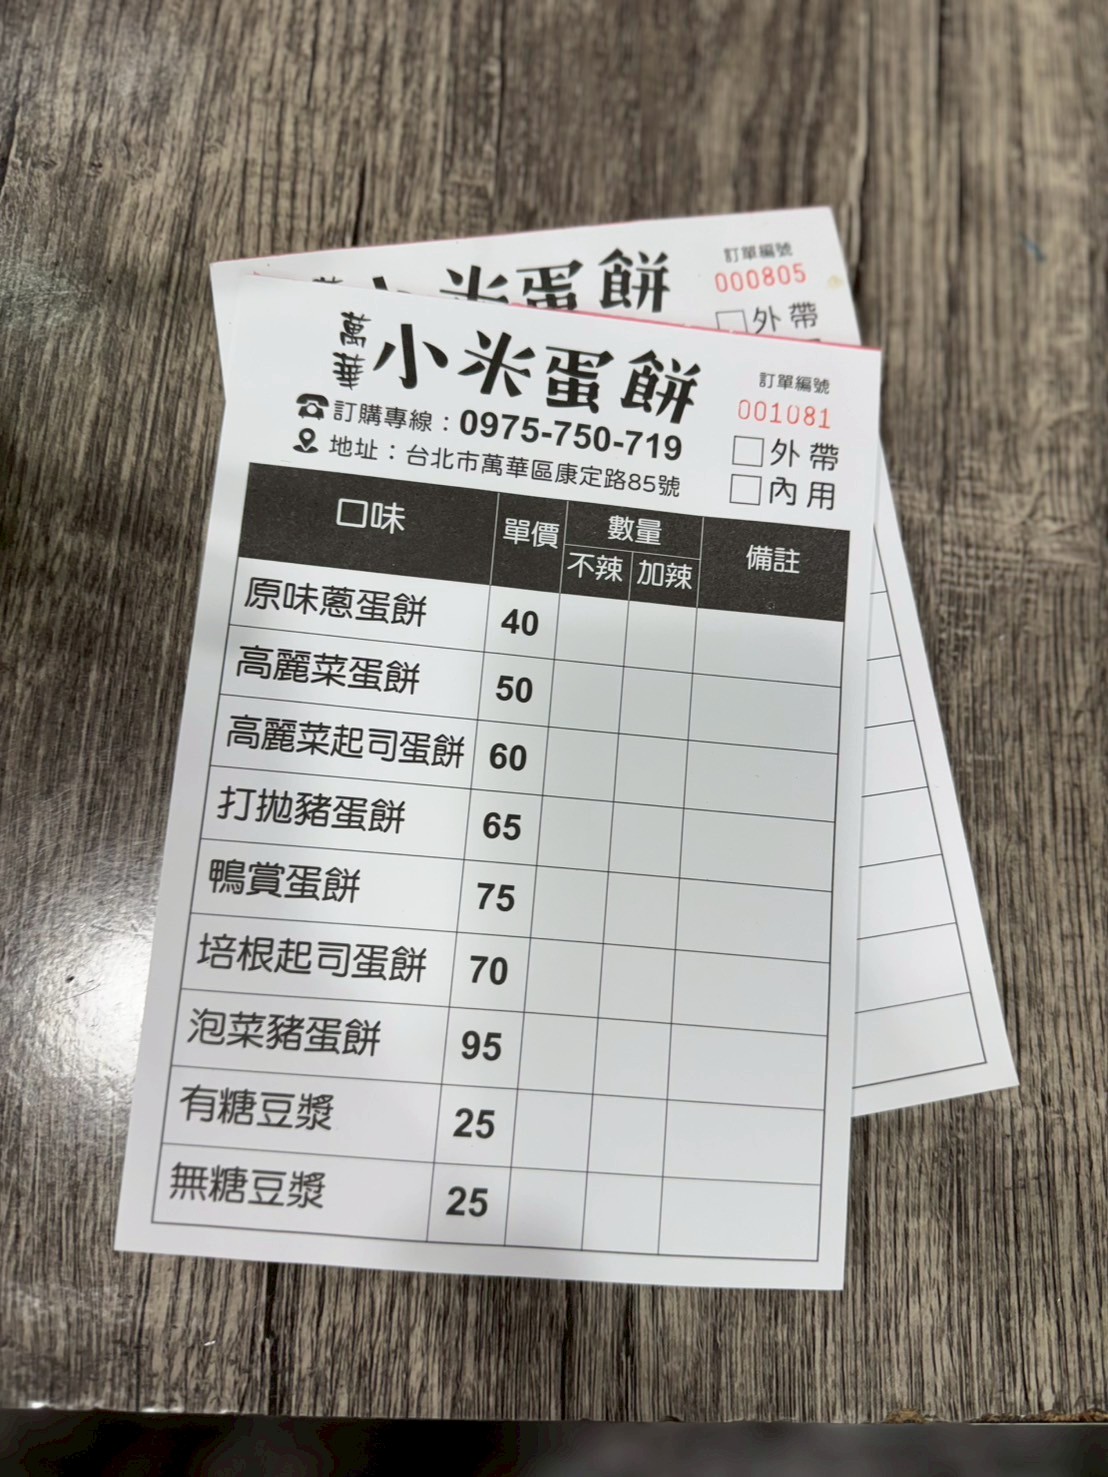 小米蛋餅
訂單編號
000805
外帶
萬華 小米蛋餅
訂單編號
001081
訂購專線：0975-750-719
地址：台北市萬華區康定路85號
外帶
內用
口味 單價 數量 備註
不辣 加辣
原味蔥蛋餅 40
高麗菜蛋餅 50
高麗菜起司蛋餅 60
打拋豬蛋餅 65
鴨賞蛋餅 75
培根起司蛋餅 70
泡菜豬蛋餅 95
有糖豆漿 25
無糖豆漿 25